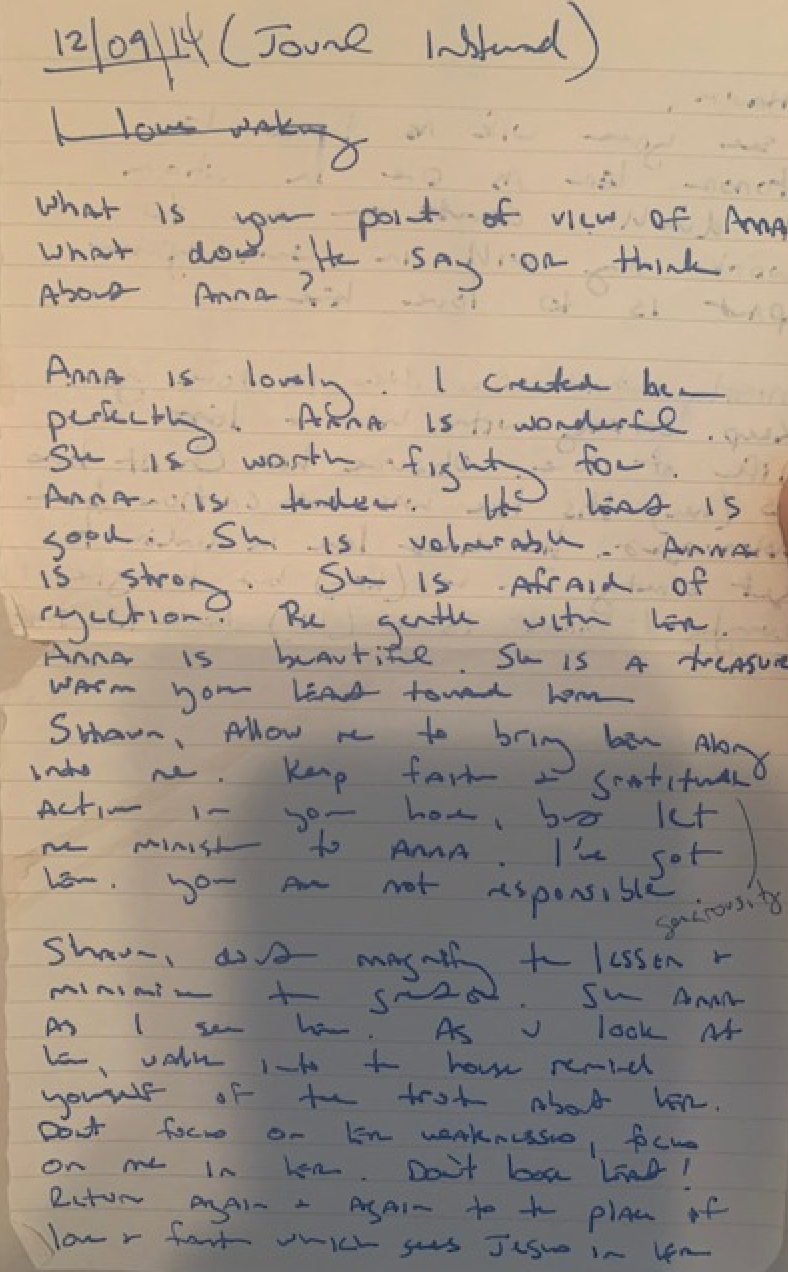 12/09/14 (
I love waking
What is your point of view of Anna
What does He say or think
About Anna?
Anna is lovely. I created her
perfectly. Anna is wonderful.
She is worth fighting for.
Anna is tender. Her heart is
good. She is vulnerable. Anna
is strong. She is afraid of
rejection. Be gentle with her.
Anna is beautiful. She is a treasure
Warm your heart toward her
Shaun, Allow me to bring her along
into me. Keep faith + gratitude
Active in your home, but let
me minister to Anna. I've got
her. You are not responsible
generosity
Shaun, don't magnify the lesser +
minimize the greater. See Anna
As I see her. As U look at
her, walk into the house remind
yourself of the truth about her.
Don't focus on her weaknesses, focus
on me in her. Don't lose heart!
Return again + again to the place of
love + faith which sees Jesus in her